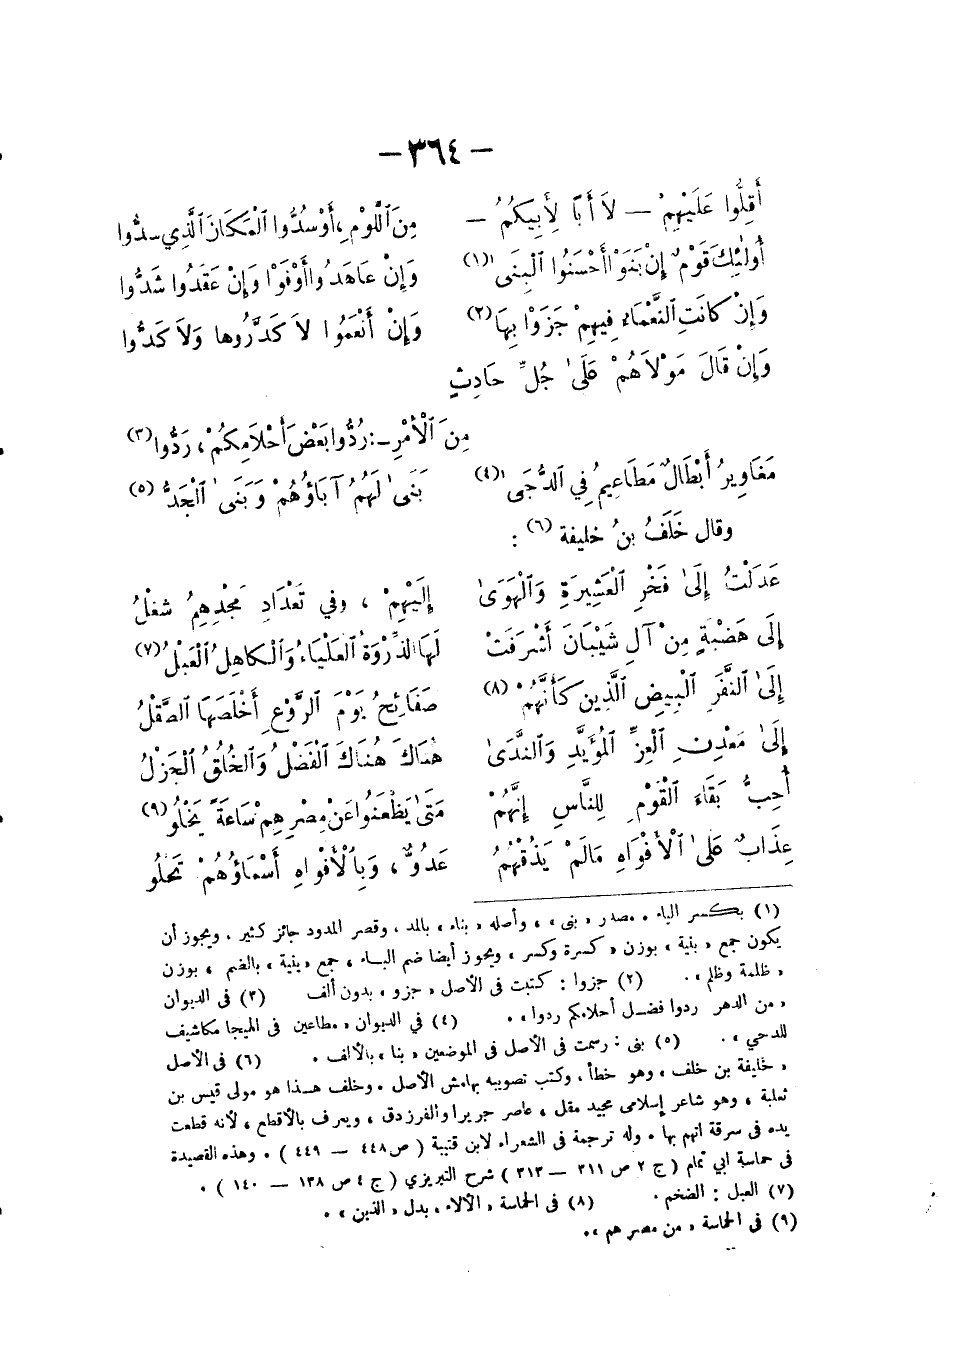 — ٣٦٤ —
أَقِلُّوا عَلَيْهِمْ — لَا أَبًا لِأَبِيكُمُ — مِنَ ٱللَّوْمِ، أَوْ سُدُّوا ٱلْمَكَانَ ٱلَّذِي سدُّوا
أُولٰئِكَ قَوْمٌ إِنْ بَنَوْا أَحْسَنُوا ٱلْبِنَى (١) وَإِنْ عَاهَدُوا أَوْفَوْا وَإِنْ عَقَدُوا شَدُّوا
وَإِنْ كَانَتِ ٱلنَّعْمَاءُ فِيهِمْ جَزَوْا بِهَا (٢) وَإِنْ أَنْعَمُوا لَا كَدَّرُوها وَلَا كَدُّوا
وَإِنْ قَالَ مَوْلَاهُمْ عَلَىٰ جُلِّ حَادِثٍ
مِنَ ٱلْأَمْرِ ـ: رُدُّوا بَعْضَ أَحْلَامِكُمْ، رَدُّوا (٣)
مَغَاوِيرُ أَبْطَالٌ مَطَاعِيمُ فِي ٱلدُّجَى (٤) بَنَىٰ لَهُمُ آبَاؤُهُمْ وَبَنَىٰ ٱلْجَدُّ (٥)
وقال خَلَفُ بنُ خليفة (٦) :
عَدَلْتُ إِلَىٰ فَخْرِ ٱلْعَشِيرَةِ وَٱلْهَوَىٰ إِلَيْهِمْ ، وفي تَعْدَادِ مَجْدِهِمُ شغْلُ
إِلَى هَضْبَةٍ مِنْ آلِ شَيْبَانَ أَشْرَفَتْ لَهَا ٱلذِّرْوَةُ ٱلعَلْيَاءُ وَٱلْكاهِلُ ٱلْعَبْلُ (٧)
إِلَىٰ ٱلنَّفَرِ ٱلْبِيضِ ٱلَّذِينَ كَأَنَّهُمْ (٨) صَفَائِحُ يَوْمَ ٱلرَّوْعِ أَخْلَصَهَا ٱلصَّقْلُ
إِلَىٰ مَعْدِنِ ٱلْعِزِّ ٱلْمُؤَيَّدِ وَٱلنَّدَىٰ هُنَاكَ هُنَاكَ ٱلْفَضْلُ وَٱلخُلُقُ ٱلْجَزْلُ
أُحِبُّ بَقَاءَ ٱلْقَوْمِ لِلنَّاسِ إِنَّهُمْ مَتَىٰ يَظْعَنُوا عَنْ مِصْرِهِمْ سَاعَةً يَخْلُو (٩)
عِذَابٌ عَلَىٰ ٱلْأَفْوَاهِ مَالَمْ يَذُقْهُمُ عَدُوٌّ ، وَبِالْأَفْوَاهِ أَسْمَاؤُهُمْ تَحْلُو
(١) بكسر الباء . مصدر «بنى» ، وأصله «بناء» بالمد ، وقصر المدود جائز كثير . ويجوز أن
يكون جمع «بنية» بوزن «كسرة وكسر» ويجوز أيضا ضم البـاء ، جمع «بنية» بالضم ، بوزن
«ظلمة وظلم» . (٢) جزوا : كتبت فى الأصل «جزو» بدون ألف (٣) فى الديوان
«من الدهر ردوا فضـل أحلامكم ردوا» . (٤) في الديوان «مطاعين فى الهيجا مكاشيف
للدجي» . (٥) بنى : رسمت فى الأصل فى الموضعين «بنا» بالألف . (٦) فى الأصل
«خليفة بن خلف» وهو خطأ . وكتب تصويبه بهامش الأصل . وخلف هـذا هو مولى قيس بن
ثعلبة ، وهو شاعر إسلامى مجيد مقل ، عاصر جريرا والفرزدق ، ويعرف بالأقطع ، لأنه قطعت
يده فى سرقة اتهم بها . وله ترجمة فى الشعراء لابن قتيبة ( ص ٤٤٨ — ٤٤٩ ) . وهذه القصيدة
فى حماسة ابي تمام ( ج ٢ ص ٣١١ — ٣١٣ ) شرح التبريزي ( ج ٤ ص ١٣٨ — ١٤٠ ) .
(٧) العبل : الضخم . (٨) فى الحماسة «الألاء» بدل «الذين» .
(٩) فى الحماسة «من مصرهم» .